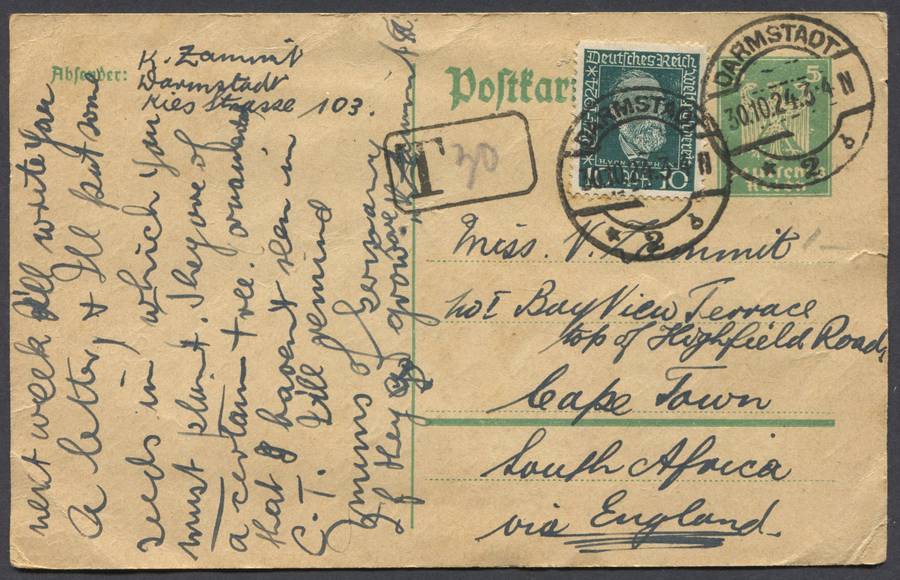 Absender:
K. Zammit
Darmstadt
Kies Strasse 103.
Postkar
Deutsches Reich
1874-1924
Weltpostverein
10
5
DARMSTADT
30.10.24.3-4 N
* 2 b
DARMSTADT
30.10.24.3-4 N
* 2 b
T 30
Miss. V. Zammit
No 1 Bay View Terrace
top of Highfield Road,
Cape Town
South Africa
via England.
next week I'll write you
a letter, & I'll put some
seeds in which you
must plant. They are of
a certain tree.
that I haven't seen in
C. T. I'll remind
of Germany
if they grow.